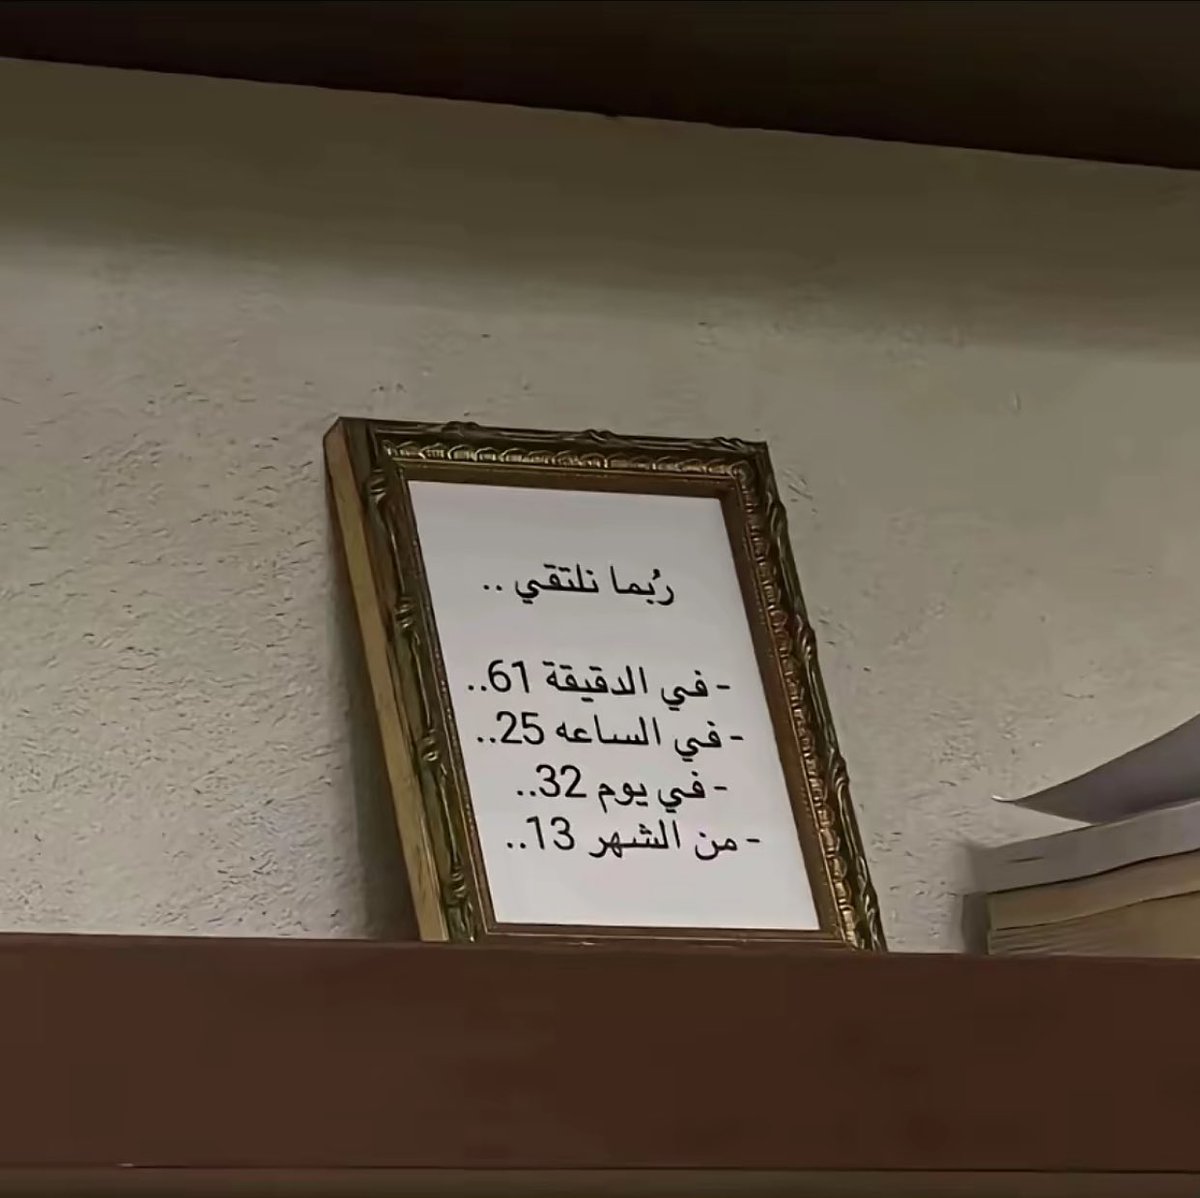 رُبما نلتقي ..
- في الدقيقة 61..
- في الساعه 25..
- في يوم 32..
- من الشهر 13..